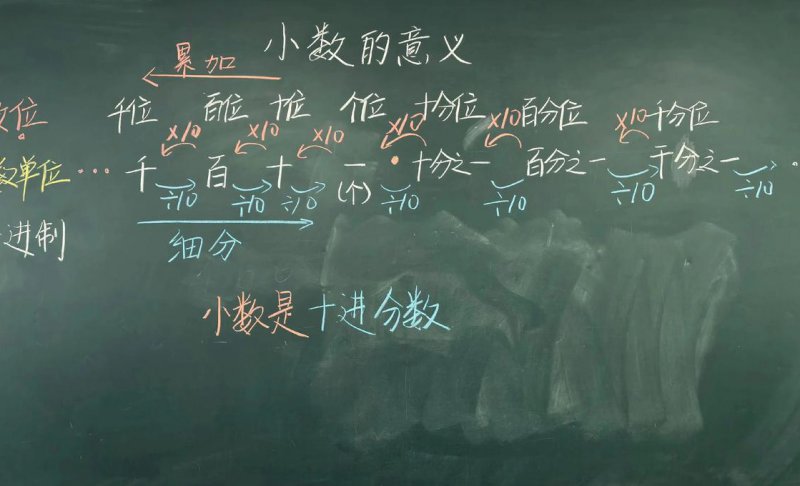 小数的意义
累加
数位 千位 百位 十位 个位 十分位 百分位 千分位
×10 ×10 ×10 ×10 ×10 ×10
数单位 … 千 百 十 一 · 十分之一 百分之一 千分之一 …
(个)
÷10 ÷10 ÷10 ÷10 ÷10 ÷10 ÷10
进制
细分
小数是十进分数